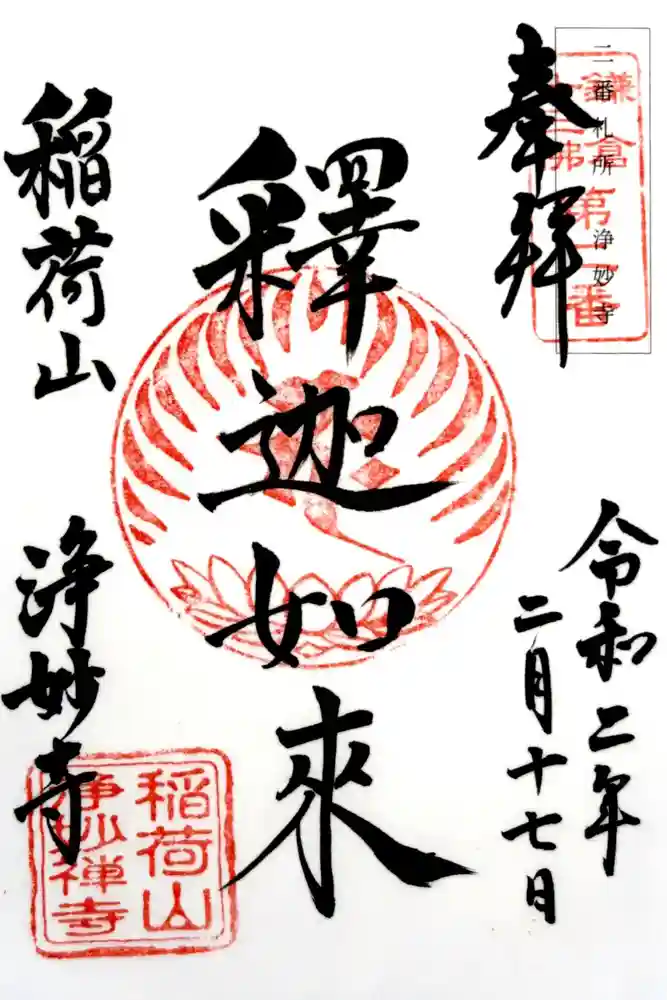 二番札所 浄妙寺
鎌倉
十三佛
第二番
奉拜
令和二年
二月十七日
釋迦如來
稲荷山
浄妙寺
稲荷山
浄妙禅寺